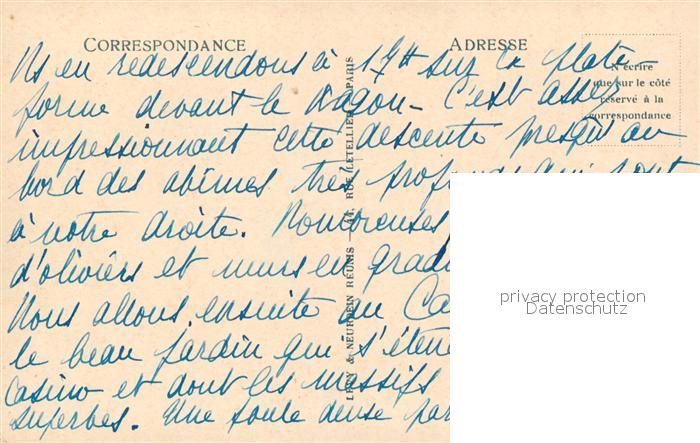 CORRESPONDANCE
ADRESSE
N'écrire
que sur le côté
réservé à la
correspondance
Ns en redescendons à 17H sur la plate-
forme devant le Wagon - C'est assez
impressionnant cette descente presqu'au
bord des abîmes très profonds qui sont
à notre droite.
d'oliviers et murs en gradi
Nous allons ensuite au Ca
le beau jardin qui s'éten
Casino et dont les massifs
superbes. Une foule dense par
LÉVY & NEURDEIN RÉUNIS — 44, RUE LETELLIER, PARIS
privacy protection
Datenschutz